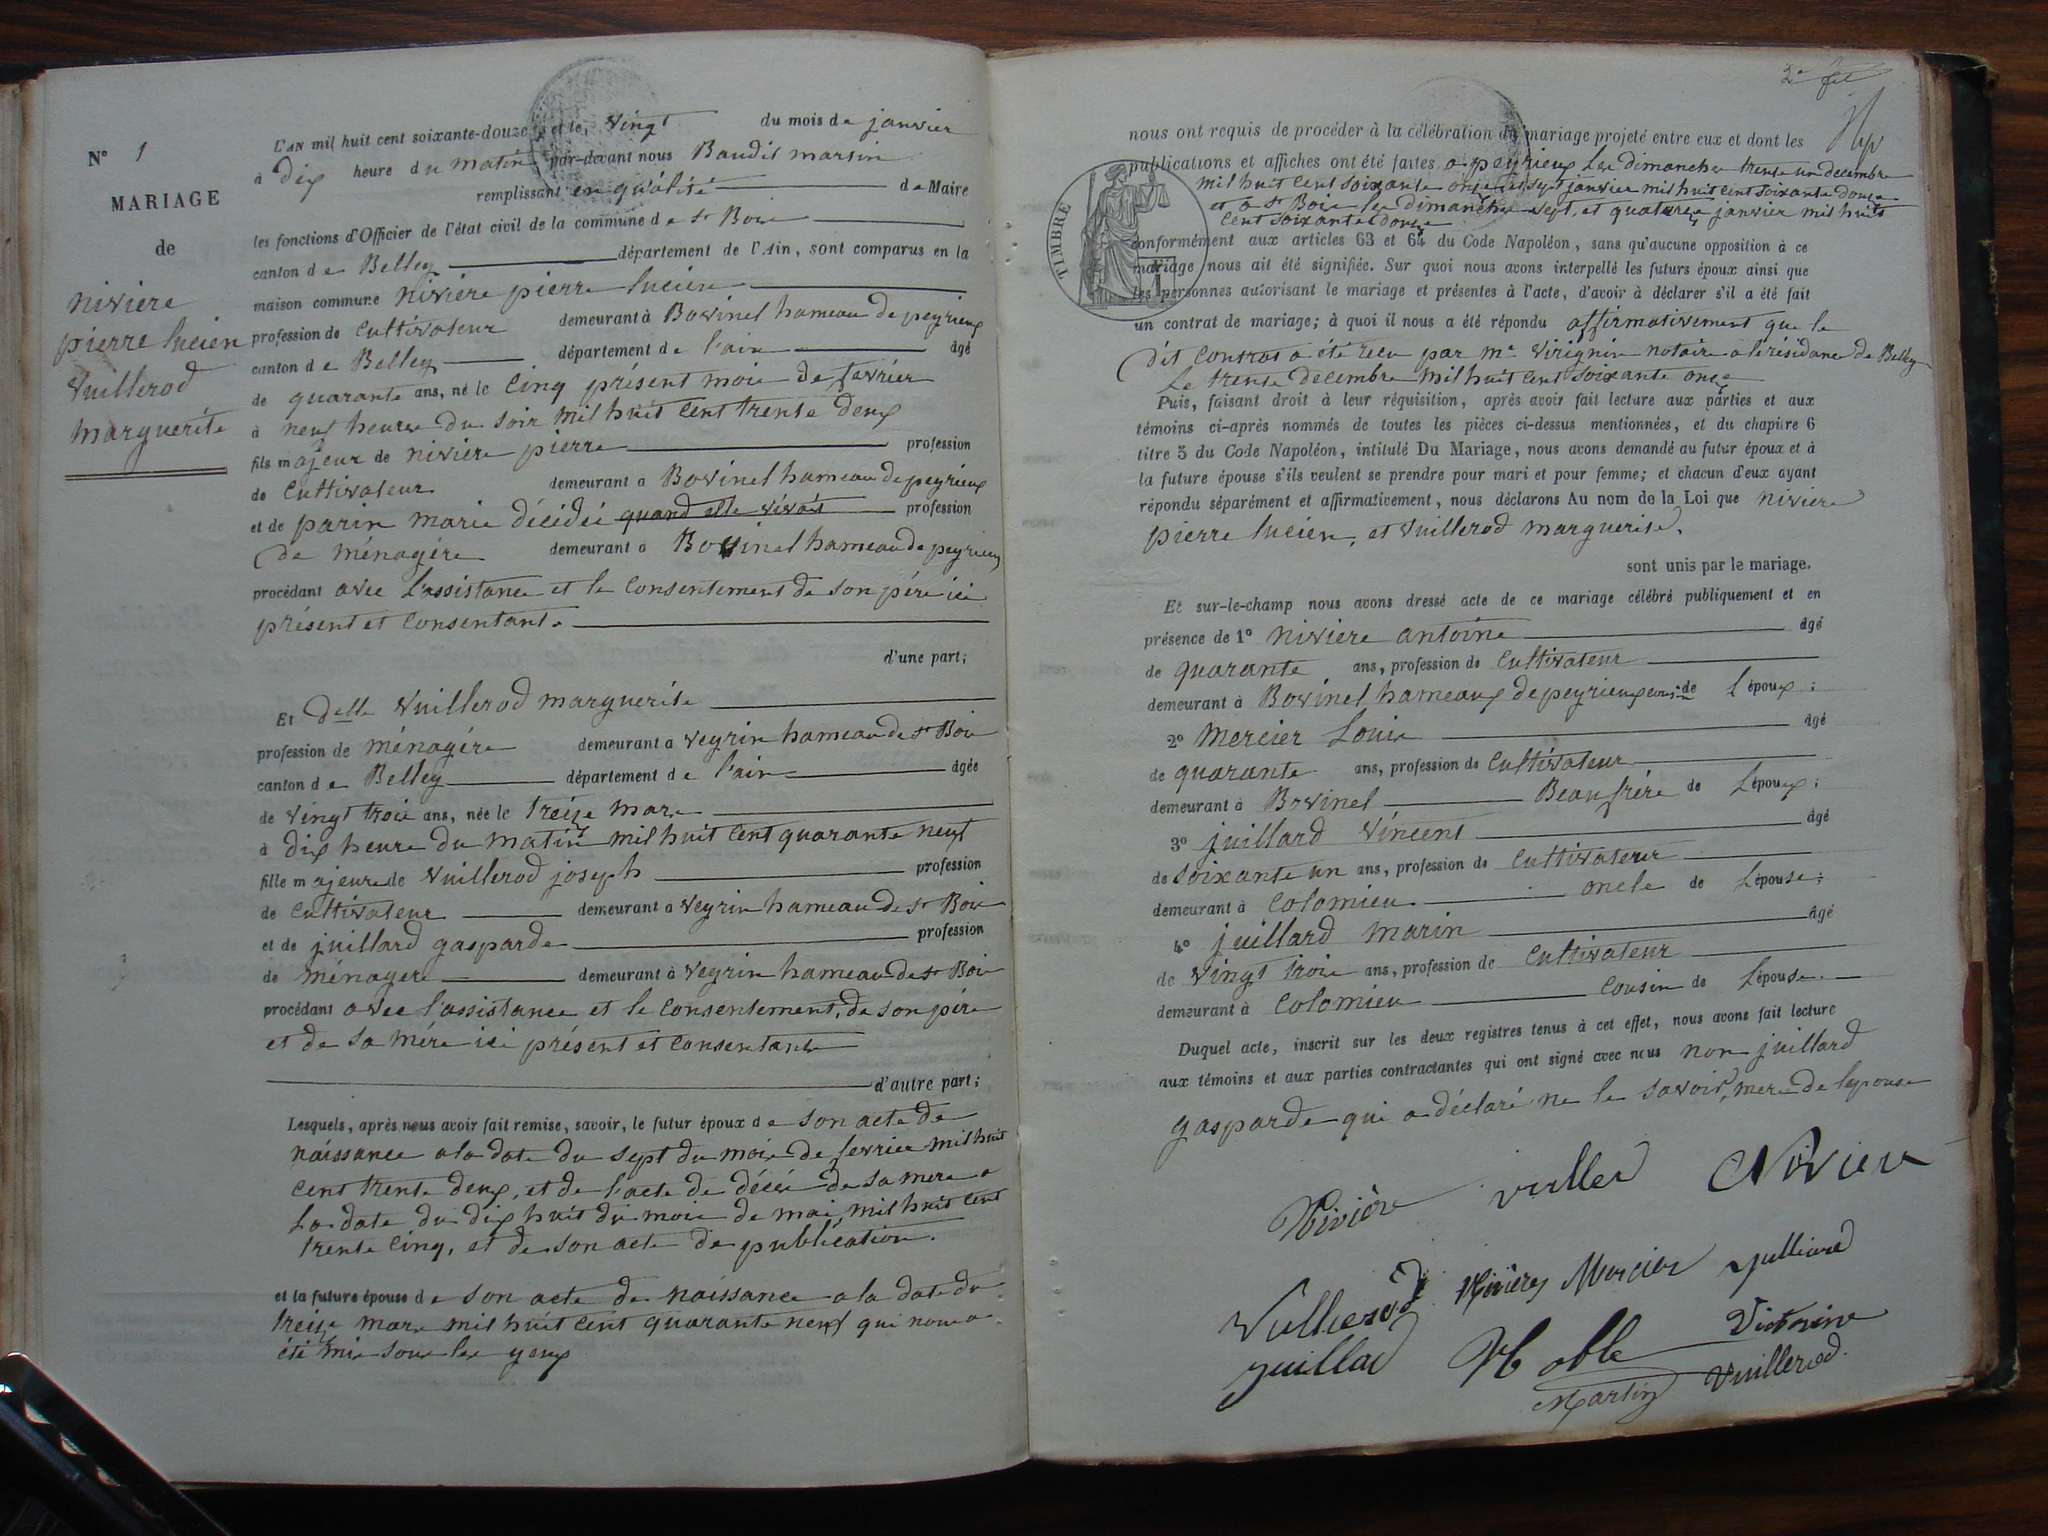 N° 1
MARIAGE
de
nivière
pierre lucien
Vuillerod
marguerite
L'AN mil huit cent soixante-douze et le vingt du mois de janvier
à dix heure du matin par-devant nous Baudit marsin
remplissant en qualité de Maire
les fonctions d'Officier de l'état civil de la commune de st Boie
canton de Belley département de l'Ain, sont comparus en la
maison commune nivière pierre lucien
profession de cultivateur demeurant à Bovinel hameau de peyrieux
canton de Belley département de l'ain âgé
de quarante ans, né le cinq présent mois de fevrier
à neuf heures du soir mil huit cent trente deux
fils majeur de nivière pierre profession
de cultivateur demeurant à Bovinel hameau de peyrieux
et de parin marie décédée quand elle vivait profession
de ménagère demeurant à Bovinel hameau de peyrieux
procédant avec l'assistance et le consentement de son père ici
présent et consentant.
d'une part;
Et delle Vuillerod marguerite
profession de ménagère demeurant à veyrin hameau de st Boie
canton de Belley département de l'ain âgée
de vingt trois ans, née le treize mars
à dix heure du matin mil huit cent quarante neuf
fille majeure de Vuillerod joseph profession
de cultivateur demeurant à veyrin hameau de st Boie
et de juillard gasparde profession
de ménagere demeurant à veyrin hameau de st Boie
procédant avec l'assistance et le consentement, de son père
et de sa mère ici présent et consentants
d'autre part;
Lesquels, après nous avoir fait remise, savoir, le futur époux de son acte de
naissance a la date du sept du mois de fevrier mil huit
cent trente deux, et de l'acte de décès de sa mere a
La date du dix huit du mois de mai mil huit cent
trente cinq, et de son acte de publication.
et la future épouse de son acte de naissance a la date du
treize mars mil huit cent quarante neuf qui nous a
été mis sous les yeux
2e fet
nous ont requis de procéder à la célébration du mariage projeté entre eux et dont les
publications et affiches ont été faites a peyrieux les dimanches trente un decembre
mil huit cent soixante onze et sept janvier mil huit cent soixante douze
et a st Boie les dimanches sept, et quatorze janvier mil huit
cent soixante douze
TIMBRE
conformément aux articles 63 et 64 du Code Napoléon, sans qu'aucune opposition à ce
mariage nous ait été signifiée. Sur quoi nous avons interpellé les futurs époux ainsi que
les personnes autorisant le mariage et présentes à l'acte, d'avoir à déclarer s'il a été fait
un contrat de mariage; à quoi il nous a été répondu affirmativement que le
dit contrat a été recu par me Virignin notaire a la résidence de Belley
Le trente decembre mil huit cent soixante onze
Puis, faisant droit à leur réquisition, après avoir fait lecture aux parties et aux
témoins ci-après nommés de toutes les pièces ci-dessus mentionnées, et du chapitre 6
titre 5 du Code Napoléon, intitulé Du Mariage, nous avons demandé au futur époux et à
la future épouse s'ils veulent se prendre pour mari et pour femme; et chacun d'eux ayant
répondu séparément et affirmativement, nous déclarons Au nom de la Loi que nivière
pierre lucien, et Vuillerod marguerite.
sont unis par le mariage.
Et sur-le-champ nous avons dressé acte de ce mariage célébré publiquement et en
présence de 1° nivière antoine âgé
de quarante ans, profession de cultivateur
demeurant à Bovinel hameaux de peyrieux de L'époux;
2° mercier Louis âgé
de quarante ans, profession de cultivateur
demeurant à Bovinel Beaufrère de L'époux;
3° juillard vincent âgé
de soixante un ans, profession de cultivateur
demeurant à colomieu oncle de L'épouse;
4° juillard marin âgé
de vingt trois ans, profession de cultivateur
demeurant à colomieu cousin de L'épouse.
Duquel acte, inscrit sur les deux registres tenus à cet effet, nous avons fait lecture
aux témoins et aux parties contractantes qui ont signé avec nous non juillard
gasparde qui a déclaré ne le savoir, mere de lepouse
Nivière vuilled Nivière
Vulherod Nivière Mercier Julliard
juillad Noble Victorine
Martin Vuillerod.